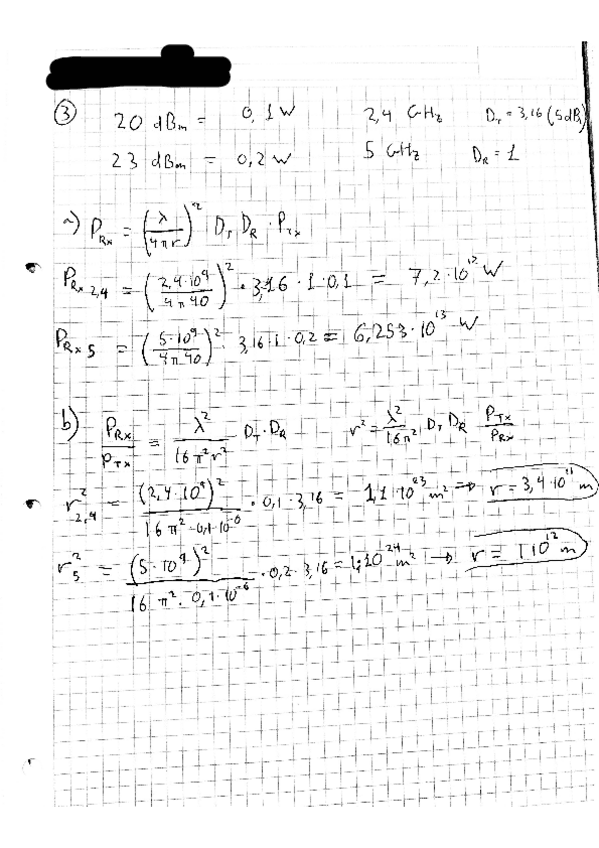 ③ 20 dBm = 0,1 W 2,4 GHz D_T = 3,16 (5dB)
23 dBm = 0,2 W 5 GHz D_R = 1
a) P_Rx = (λ / 4πr)² D_T D_R · P_Tx
P_Rx 2,4 = (2,4·10⁹ / 4π 40)² · 3,16 · 1 · 0,1 = 7,2·10¹² W
P_Rx 5 = (5·10⁹ / 4π 40)² · 3,16 · 1 · 0,2 = 6,253·10¹³ W
b) P_Rx / P_Tx = λ² / 16π²r² D_T · D_R r² = λ² / 16π² D_T D_R P_Tx / P_Rx
r²_2,4 = (2,4·10⁹)² / 16π² · 0,1·10⁻⁶ · 0,1 · 3,16 = 1,1·10²³ m² → r = 3,4·10¹¹ m
r²_5 = (5·10⁹)² / 16 π² · 0,1·10⁻⁶ · 0,2 · 3,16 = 1·10²⁴ m² → r = 1·10¹² m